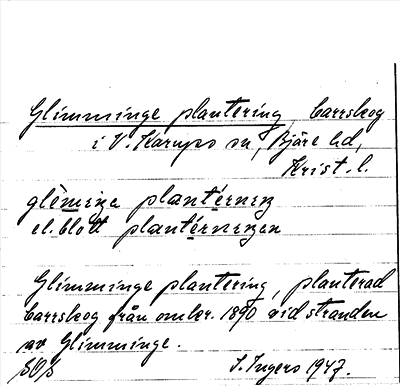 Glimminge plantering, barrskog
i V. Karups sn, Bjäre hd,
Krist. l.
glèminge plantérninʒ
el. blott plantérninʒen
Glimminge plantering, planterad
barrskog från omkr. 1890 vid stranden
av Glimminge.
SOS I. Ingers 1947.